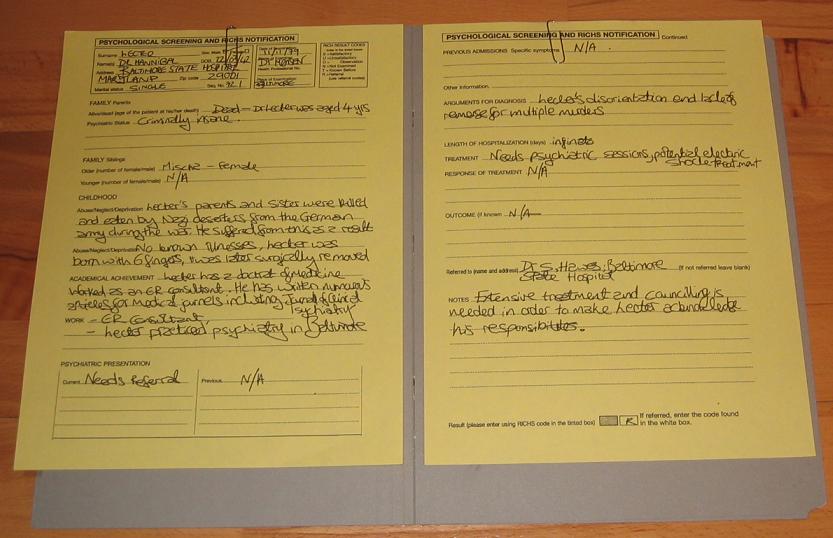 PSYCHOLOGICAL SCREENING AND RICHS NOTIFICATION
Surname LECTER
DR HANNIBAL
Address BALTIMORE STATE HOSPITAL
MARYLAND Zip code 29001
Marital status SINGLE
DR
BALTIMORE
RICH RESULT CODES
FAMILY Parents
Alive/dead (age of the patient at his/her death) Dead - Dr Lecter was aged 4 yrs
Psychiatric Status Criminally insane.
FAMILY Siblings
Older (number of female/male) Mischa - Female
Younger (number of female/male) N/A
CHILDHOOD
Abuse/Neglect/Deprivation Lecter's parents and Sister were killed
and eaten by Nazi deserters from the German
army during the war. He suffered from this as a result
Abuse/Neglect/Deprivation No known illnesses, Lecter was
born with 6 fingers, it was later surgically removed
ACADEMICAL ACHIEVEMENT Lecter has a doctrat of Medicine
Worked as an ER consultant. He has written numerous
articles for Medical jurnels including Jurnal of Clinical
Psychiatry
WORK - ER Consultant,
- Lecter practiced psychiatry in Baltimore
PSYCHIATRIC PRESENTATION
Current Needs Referral Previous N/A
PSYCHOLOGICAL SCREENING AND RICHS NOTIFICATION Continued
PREVIOUS ADMISSIONS Specific symptoms N/A.
Other Information.
ARGUMENTS FOR DIAGNOSIS Lecter's disorientation and lack of
remorse for multiple murders
LENGTH OF HOSPITALIZATION (days)
TREATMENT Needs psychiatric sessions, potential electric
shock treatment
RESPONSE OF TREATMENT N/A
OUTCOME (if known N/A
Referred to (name and address) Dr S. Hawes, Baltimore (If not referred leave blank)
State Hospital
NOTES Extensive treatment and councilling is
needed in order to make Lecter acknowledge
his
Result (please enter using RICHS code in the tinted box) R If referred, enter the code found
in the white box.